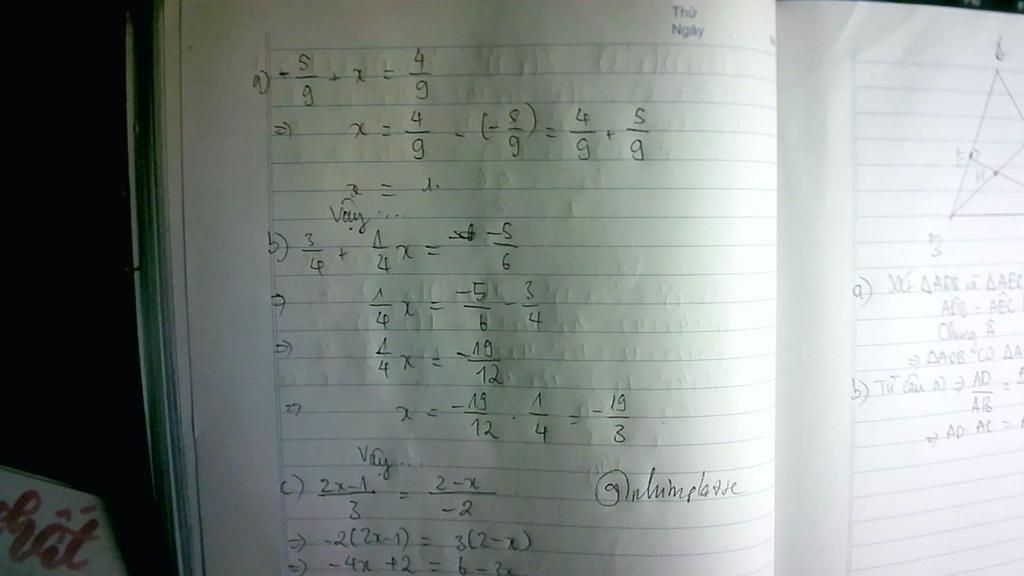 Thứ
Ngày
a) -5/9 + x = 4/9
=> x = 4/9 - (-5/9) = 4/9 + 5/9
x = 1.
Vậy ...
b) 3/4 + 1/4 x = -5/6
=> 1/4 x = -5/6 - 3/4
=> 1/4 x = -19/12
=> x = -19/12 . 1/4 = -19/3
Vậy ...
c) (2x-1)/3 = (2-x)/-2
=> -2(2x-1) = 3(2-x)
=> -4x + 2 = 6 - 3x
B
E
H
a) Xét ΔADB và ΔAEC
Chung Â
=> ΔADB
b) Từ câu a) => AD/AB =
=> AD AC =